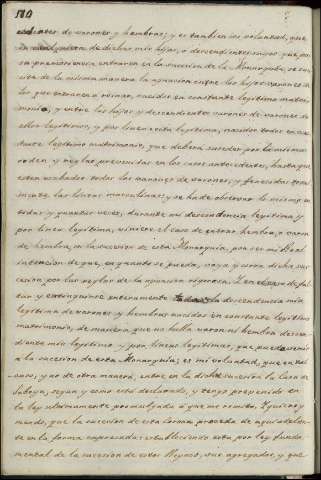 180
de varones y hembras; y es tambien mi voluntad, que
en qualquiera de dichos mis hijos, o descendientes mios que, por
su preexistencia entraren en la sucesion de la Monarquia, se sub-
de la misma manera la agnacion entre los hijos varones de
los que entraren a reinar, nacidos en constante legitimo matri-
monio, y entre los hijos y descendientes varones de varones de
ellos legitimos, y por linea recta legitima, nacidos todos en cons-
tante legitimo matrimonio, que deberá suceder por el mismo
orden y reglas prevenidas en los casos antecedentes, hasta que
esten acabados todos los varones de varones, y fenecidas total-
mente las lineas masculinas; y se ha de observar lo mismo en
todas y quantas veces, durante mi descendencia legitima y
por linea legitima, viniere el caso de entrar hembra, o varon
de hembra, en la sucesion de esta Monarquia, por ser mi Real
intencion de que, en quanto se pueda, vaya y corra dicha suc-
cesion por las reglas de la agnacion rigorosa. Y en el caso de fal-
tar y extinguirse enteramente toda la descendencia mia
legitima de varones y hembras nacidos en constante legitimo
matrimonio, de manera, que no haya varon ni hembra descen-
diente mio legitimo y por lineas legitimas, que pueda venir
á la sucesion de esta Monarquia; es mi voluntad, que en tal
caso, y no de otra manera, entre en la dicha sucesion la Casa de
Saboya, segun y como está declarado, y tengo prevenido en
la ley ultimamente promulgada á que me remito. Y quiero y
mando, que la sucesion de esta corona proceda de aqui adelan-
te en la forma expresada: estableciendo esta por ley funda-
mental de la sucesion de estos Reynos, sus agregados, y que